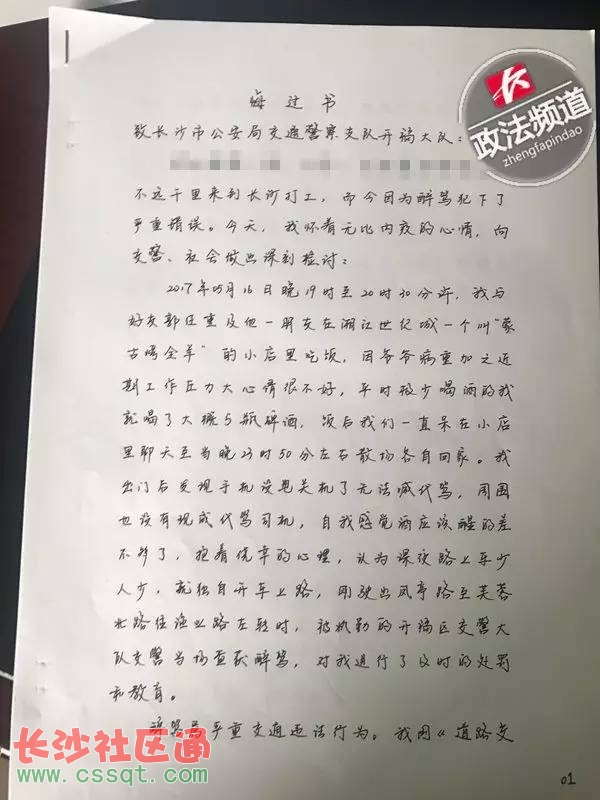 政法频道
zhengfapindao
悔过书
致长沙市公安局交通警察支队开福大队：
不远千里来到长沙打工，而今因为醉驾犯下了
严重错误。今天，我怀着无比内疚的心情，向
交警、社会做出深刻检讨：
2017年05月16日晚19时至20时30分许，我与
好友郭任重及他一朋友在湘江世纪城一个叫“蒙
古烤全羊”的小店里吃饭，因爷爷病重加之近
期工作压力大心情很不好，平时极少喝酒的我
就喝了大概5瓶啤酒，饭后我们一直呆在小店
里聊天至当晚23时50分左右散场各自回家。我
出门后发现手机没电关机了无法喊代驾，周围
也没有现成代驾司机，自我感觉酒应该醒的差
不多了，抱着侥幸的心理，认为深夜路上车少
人少，就独自开车上路，刚驶出凤亭路至芙蓉
北路往渔业路左转时，被执勤的开福区交警大
队交警当场查获醉驾，对我进行了及时的处罚
和教育。
醉驾属严重交通违法行为。我国《道路交
长沙社区通
www.cssqt.com
01